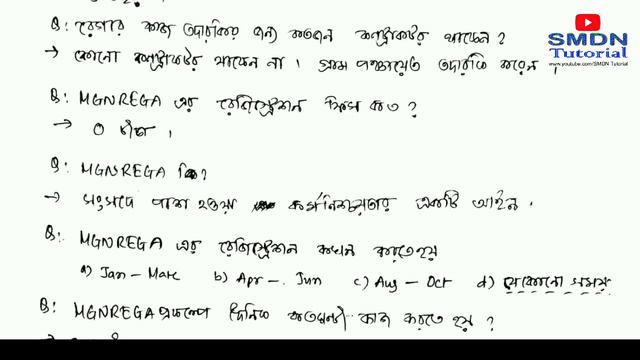 Q: রেগার কাজ তদারকির জন্য কতজন কন্ট্রাকটর থাকেন?
→ কোনো কন্ট্রাকটর থাকেন না। গ্রাম পঞ্চায়েত তদারকি করেন।
Q: MGNREGA এর রেজিস্ট্রেশন ফিস কত?
→ 0 টাকা।
Q: MGNREGA কি?
→ সংসদে পাশ হওয়া কর্মনিশ্চয়তার একটি আইন।
Q: MGNREGA এর রেজিস্ট্রেশন কখন করতে হয়
a) Jan - Marc b) Apr - Jun c) Aug - Oct d) যেকোনো সময়
Q: MGNREGA প্রকল্পে দৈনিক কতঘন্টা কাজ করতে হয়?
SMDN
Tutorial
www.youtube.com/SMDN Tutorial